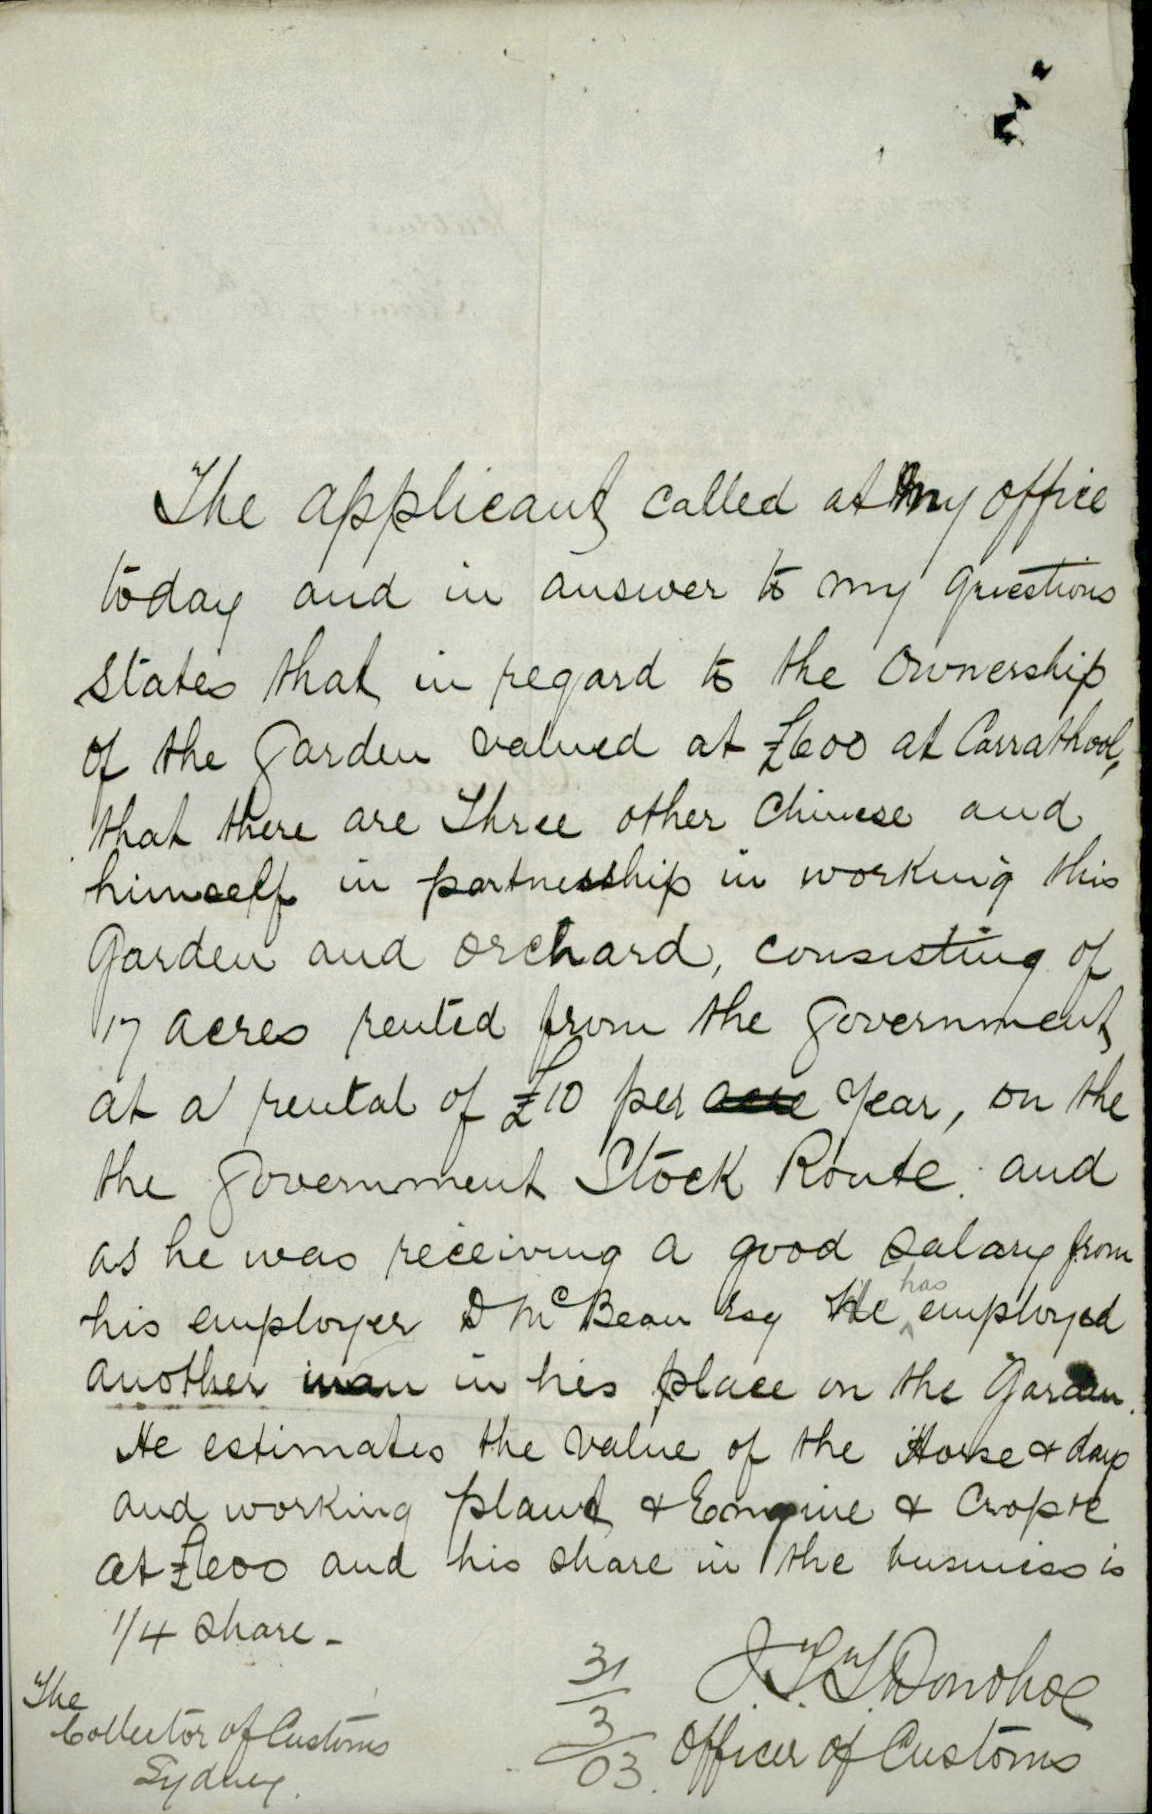 The applicant called at my office
today and in answer to my questions
states that in regard to the Ownership
of the Garden valued at £600 at Carrathool,
that there are Three other Chinese and
himself in partnership in working this
Garden and orchard, consisting of
17 acres rented from the Government
at a rental of £10 per acre year, on the
the Government Stock Route. and
as he was receiving a good salary from
his employer D McBean Esq He has employed
another man in his place on the Garden.
He estimates the value of the Horse & dray
and working plant & Engine & Crops &c
at £600 and his share in the business is
1/4 share -
J.T.T. Donohoe
Officer of Customs
31/3/03.
The
Collector of Customs
Sydney.